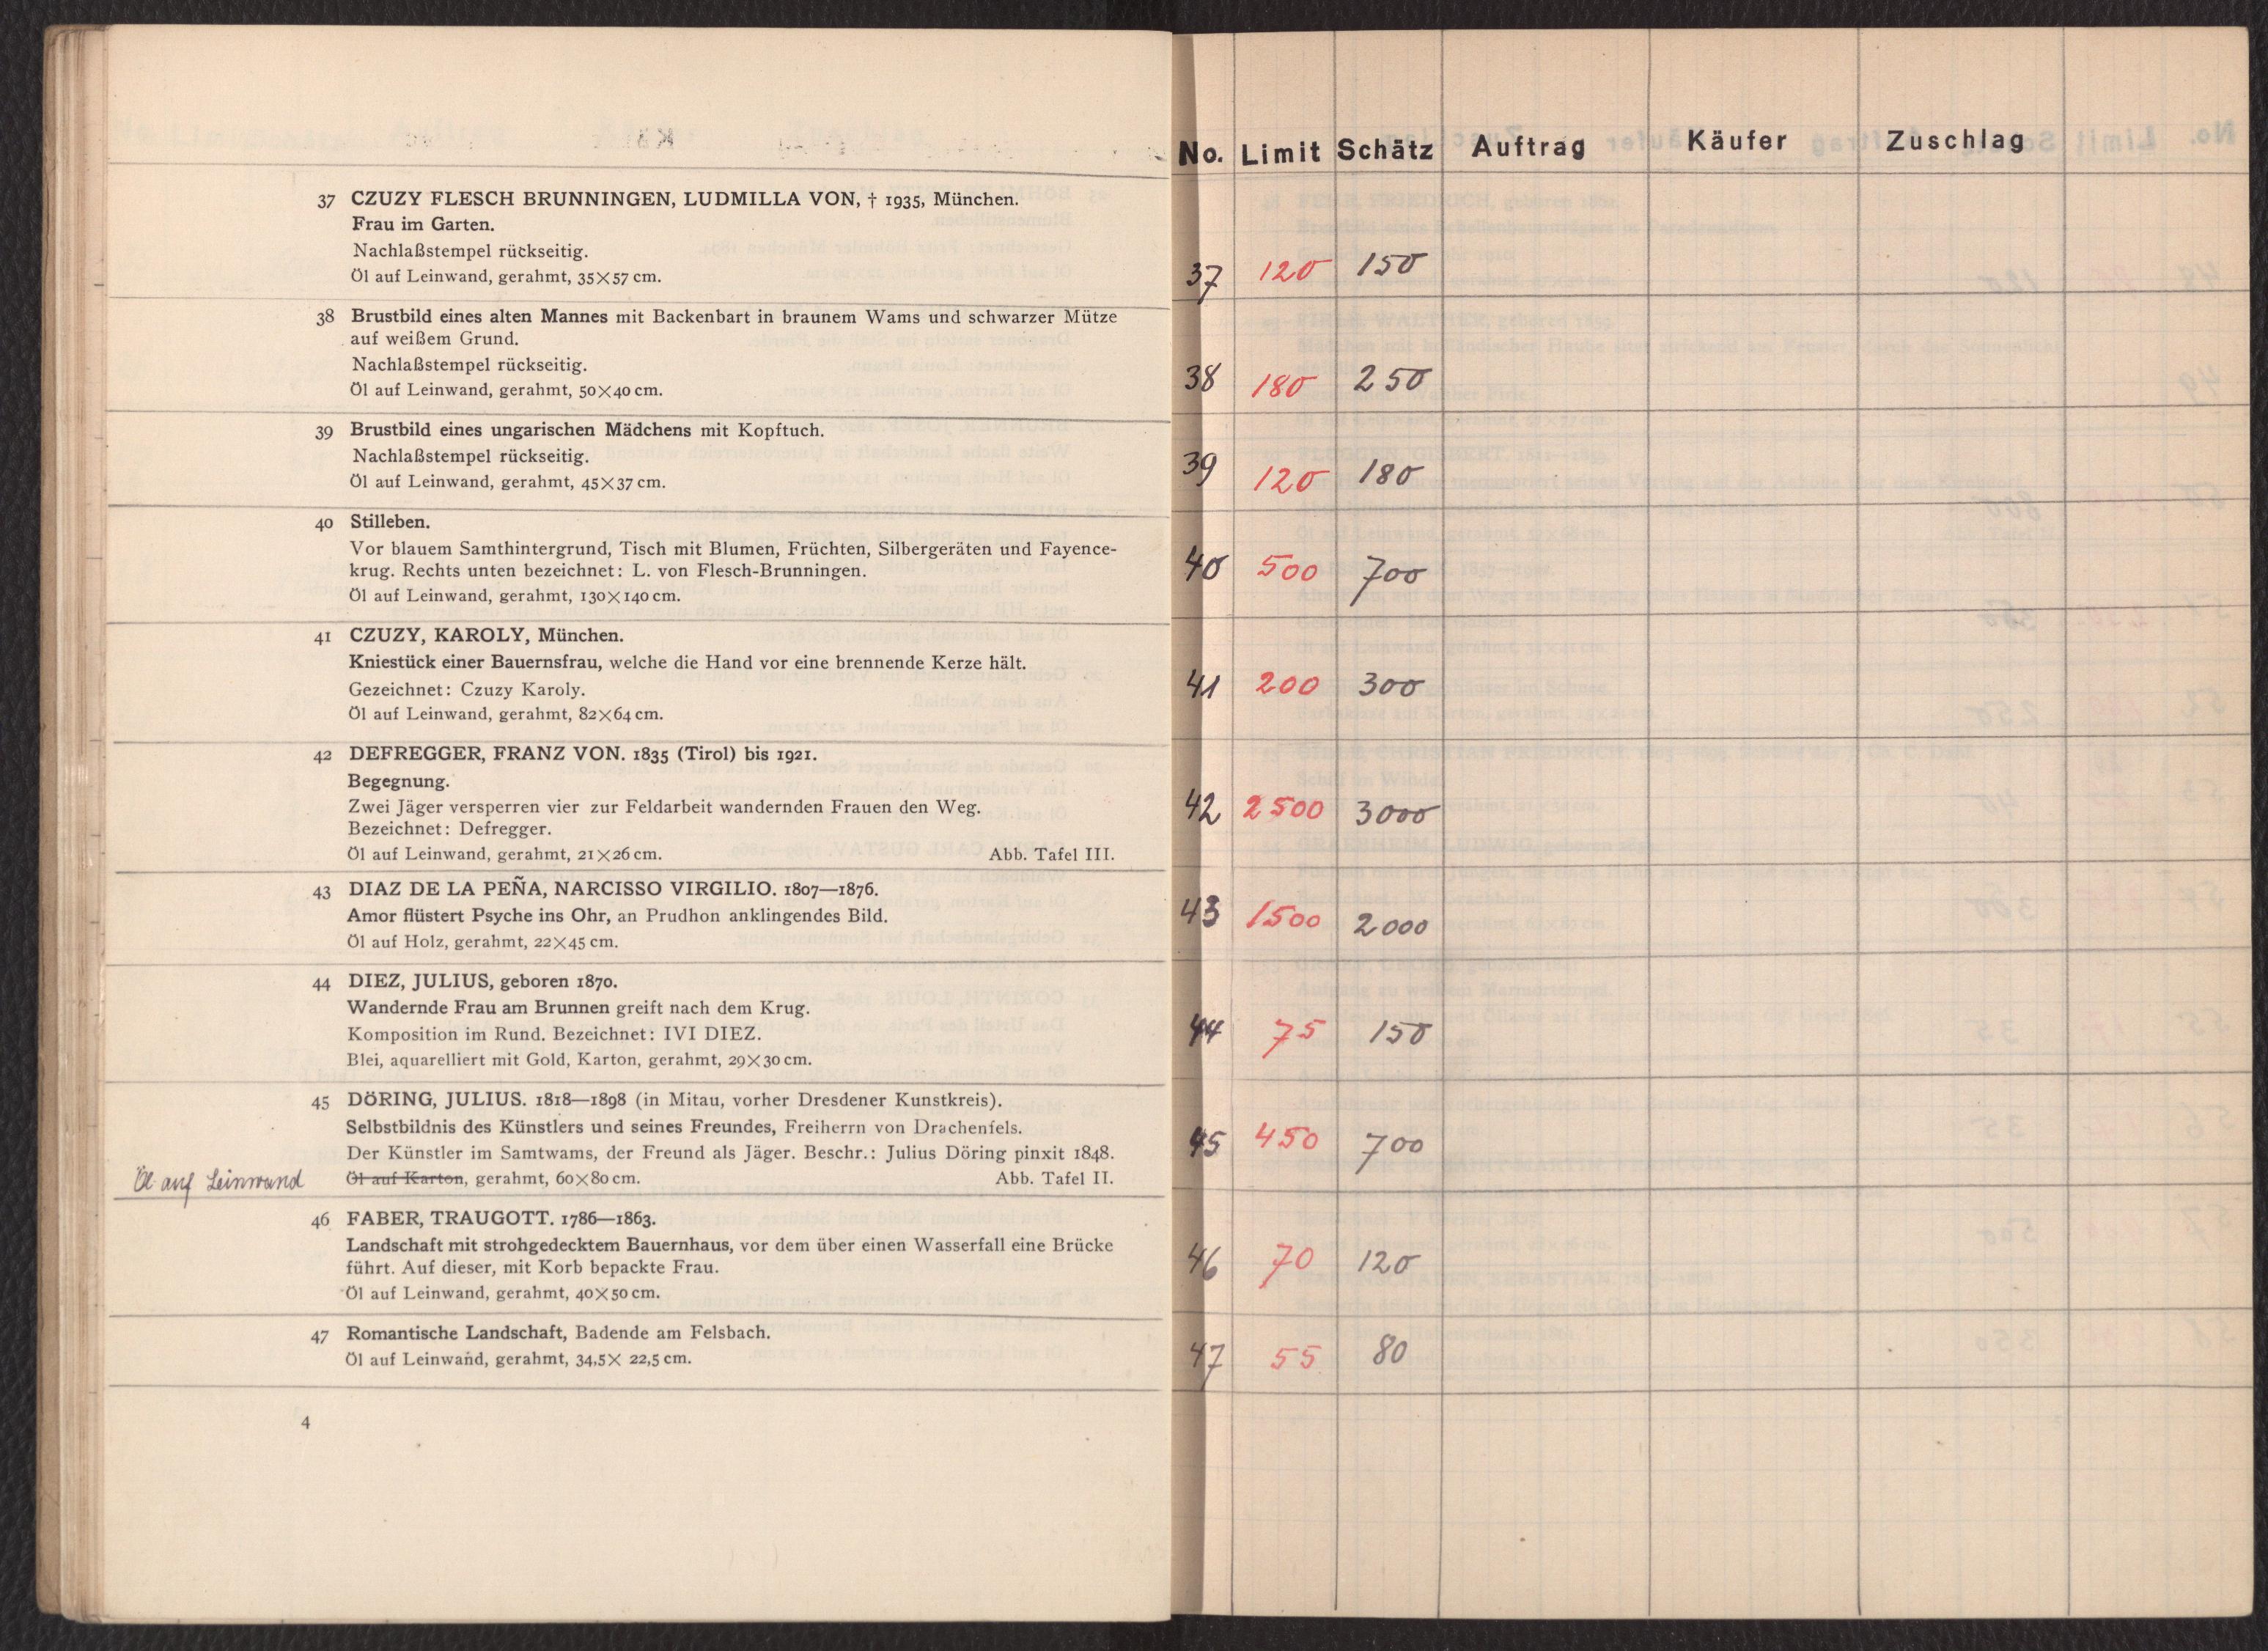 37 CZUZY FLESCH BRUNNINGEN, LUDMILLA VON, † 1935, München.
Frau im Garten.
Nachlaßstempel rückseitig.
Öl auf Leinwand, gerahmt, 35×57 cm.
38 Brustbild eines alten Mannes mit Backenbart in braunem Wams und schwarzer Mütze
auf weißem Grund.
Nachlaßstempel rückseitig.
Öl auf Leinwand, gerahmt, 50×40 cm.
39 Brustbild eines ungarischen Mädchens mit Kopftuch.
Nachlaßstempel rückseitig.
Öl auf Leinwand, gerahmt, 45×37 cm.
40 Stilleben.
Vor blauem Samthintergrund, Tisch mit Blumen, Früchten, Silbergeräten und Fayence-
krug. Rechts unten bezeichnet: L. von Flesch-Brunningen.
Öl auf Leinwand, gerahmt, 130×140 cm.
41 CZUZY, KAROLY, München.
Kniestück einer Bauernsfrau, welche die Hand vor eine brennende Kerze hält.
Gezeichnet: Czuzy Karoly.
Öl auf Leinwand, gerahmt, 82×64 cm.
42 DEFREGGER, FRANZ VON. 1835 (Tirol) bis 1921.
Begegnung.
Zwei Jäger versperren vier zur Feldarbeit wandernden Frauen den Weg.
Bezeichnet: Defregger.
Öl auf Leinwand, gerahmt, 21×26 cm. Abb. Tafel III.
43 DIAZ DE LA PEÑA, NARCISSO VIRGILIO. 1807—1876.
Amor flüstert Psyche ins Ohr, an Prudhon anklingendes Bild.
Öl auf Holz, gerahmt, 22×45 cm.
44 DIEZ, JULIUS, geboren 1870.
Wandernde Frau am Brunnen greift nach dem Krug.
Komposition im Rund. Bezeichnet: IVI DIEZ.
Blei, aquarelliert mit Gold, Karton, gerahmt, 29×30 cm.
45 DÖRING, JULIUS. 1818—1898 (in Mitau, vorher Dresdener Kunstkreis).
Selbstbildnis des Künstlers und seines Freundes, Freiherrn von Drachenfels.
Der Künstler im Samtwams, der Freund als Jäger. Beschr.: Julius Döring pinxit 1848.
Öl auf Leinwand Öl auf Karton, gerahmt, 60×80 cm. Abb. Tafel II.
46 FABER, TRAUGOTT. 1786—1863.
Landschaft mit strohgedecktem Bauernhaus, vor dem über einen Wasserfall eine Brücke
führt. Auf dieser, mit Korb bepackte Frau.
Öl auf Leinwand, gerahmt, 40×50 cm.
47 Romantische Landschaft, Badende am Felsbach.
Öl auf Leinwand, gerahmt, 34,5× 22,5 cm.
4
No. Limit Schätz Auftrag Käufer Zuschlag
37 120 150
38 180 250
39 120 180
40 500 700
41 200 300
42 2500 3000
43 1500 2000
44 75 150
45 450 700
46 70 120
47 55 80